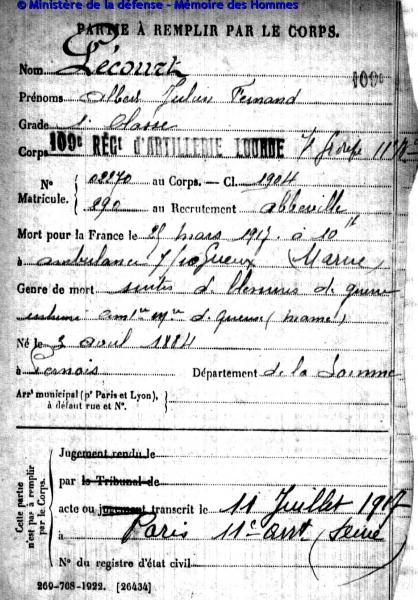 © Ministère de la défense - Mémoire des Hommes
PARTIE À REMPLIR PAR LE CORPS.
Nom Lécourt
Prénoms Albert Julien Fernand
Grade 1e classe
Corps 109e RÉGt D'ARTILLERIE LOURDE 7e Groupe 11e
No 02270 au Corps. — Cl. 1904
Matricule. 290 au Recrutement Abbeville
Mort pour la France le 25 mars 1917 à 10h
à ambulance 7/10 Gueux (Marne)
Genre de mort suites de blessures de guerre
inhumé de gueux (marne)
Né le 3 avril 1884
à Pernois Département de la Somme
Arrt municipal (pr Paris et Lyon),
à défaut rue et No.
Cette partie
n'est pas à remplir
par le Corps.
Jugement rendu le
par le Tribunal de
acte ou jugement transcrit le 11 Juillet 1917
à Paris 11e arrt (Seine)
No du registre d'état civil
269-708-1922. [26434]